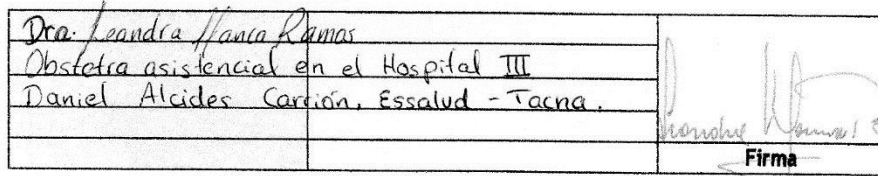 Dra. Leandra Llanca Ramos
Obstetra asistencial en el Hospital III
Daniel Alcides Carrión, Essalud - Tacna.
Firma